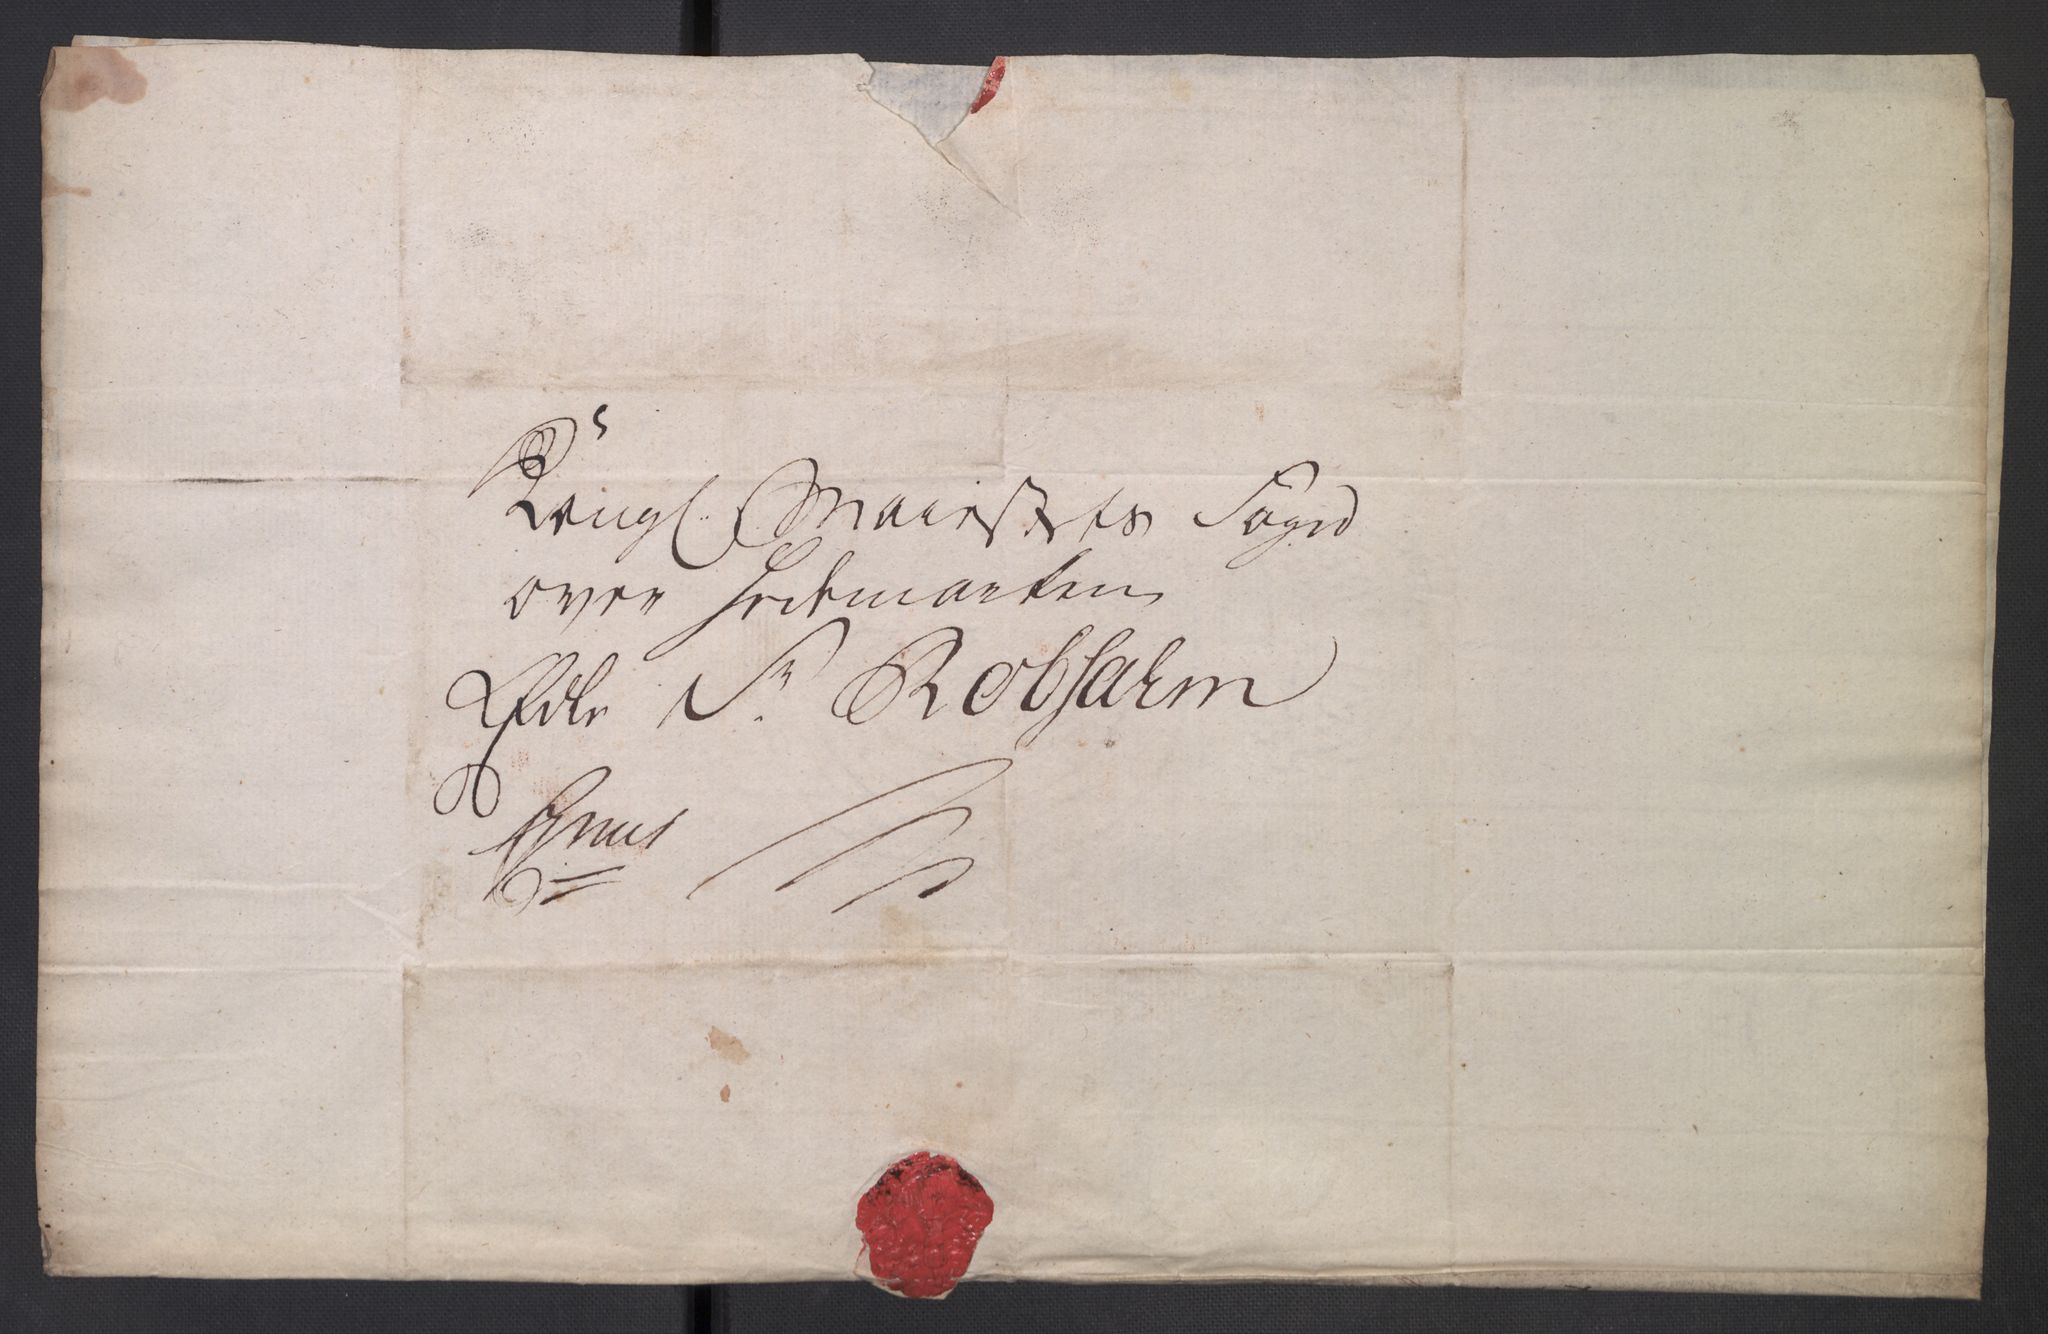 Kongl. Maiestets Foged
over Hedemarken
Edle Sr. Robsahm